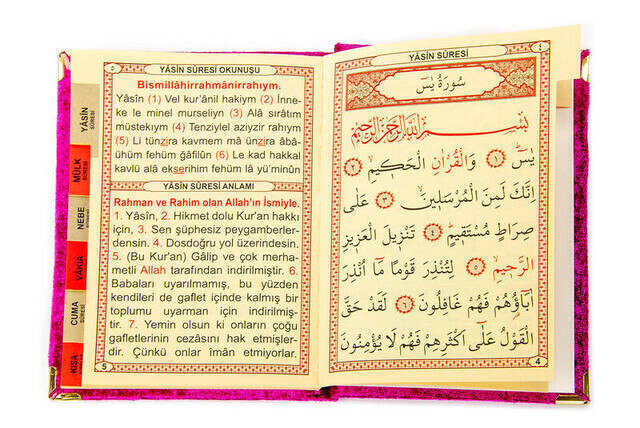 ٤
YÂSÎN SÛRESİ
سُورَةُ يٰسٓ
بِسْمِ اللّٰهِ الرَّحْمٰنِ الرَّحِيمِ
يٰسٓ ﴿١﴾ وَالْقُرْاٰنِ الْحَكِيمِ ﴿٢﴾
اِنَّكَ لَمِنَ الْمُرْسَلِينَ ﴿٣﴾ عَلٰى
صِرَاطٍ مُسْتَقِيمٍ ﴿٤﴾ تَنْزِيلَ الْعَزِيزِ
الرَّحِيمِ ﴿٥﴾ لِتُنْذِرَ قَوْمًا مَٓا اُنْذِرَ
اٰبَٓاؤُهُمْ فَهُمْ غَافِلُونَ ﴿٦﴾ لَقَدْ حَقَّ
الْقَوْلُ عَلٰٓى اَكْثَرِهِمْ فَهُمْ لَا يُؤْمِنُونَ
4
٥
YÂSÎN SÛRESİ OKUNUŞU
Bismillâhirrahmânirrahıym.
Yâsîn (1) Vel kur'ânil hakiym (2) İnne-
ke le minel murseliyn (3) Alâ sırâtım
müstekıym (4) Tenziylel aziyzir rahıym
(5) Li tünzira kavmem mâ ünzira âbâ-
ühüm fehüm ğâfilûn (6) Le kad hakkal
kavlü alâ ekserihim fehüm lâ yü'minûn
YÂSÎN SÛRESİ ANLAMI
Rahman ve Rahim olan Allah'ın İsmiyle.
1. Yâsîn, 2. Hikmet dolu Kur'an hakkı
için, 3. Sen şüphesiz peygamberler-
densin. 4. Dosdoğru yol üzerindesin.
5. (Bu Kur'an) Gâlip ve çok merha-
metli Allah tarafından indirilmiştir. 6.
Babaları uyarılmamış, bu yüzden
kendileri de gaflet içinde kalmış bir
toplumu uyarman için indirilmiş-
tir. 7. Yemin olsun ki onların çoğu
gafletlerinin cezâsını hak etmişler-
dir. Çünkü onlar îmân etmiyorlar.
5
YÂSÎN
SÛRESİ
MÜLK
SÛRESİ
NEBE
SÛRESİ
VÂKIA
SÛRESİ
CUMA
SÛRESİ
KISA